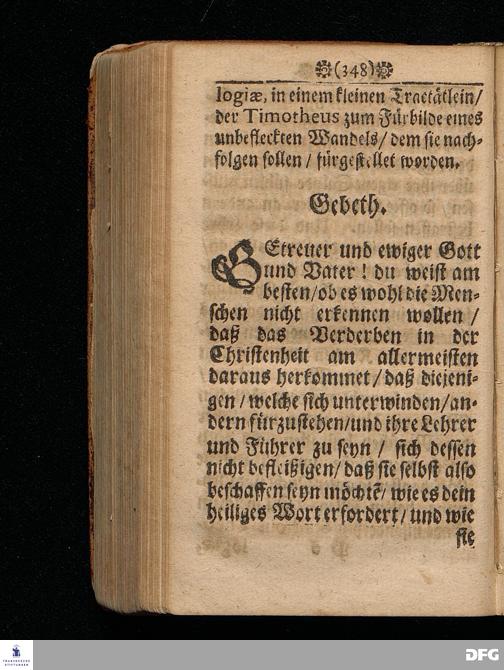 (348)
logiæ, in einem kleinen Tractätlein/
der Timotheus zum Fürbilde eines
unbefleckten Wandels/ dem sie nach-
folgen sollen / fürgestellet worden.
Gebeth.
GEtreuer und ewiger Gott
und Vater! du weist am
besten/ob es wohl die Men-
schen nicht erkennen wollen /
daß das Verderben in der
Christenheit am allermeisten
daraus herkommet/daß diejeni-
gen / welche sich unterwinden/an-
dern fürzustehen/und ihre Lehrer
und Führer zu seyn / sich dessen
nicht befleißigen/daß sie selbst also
beschaffen seyn möchtẽ/ wie es dein
heiliges Wort erfordert/ und wie
sie
FRANCKESCHE
STIFTUNGEN
DFG